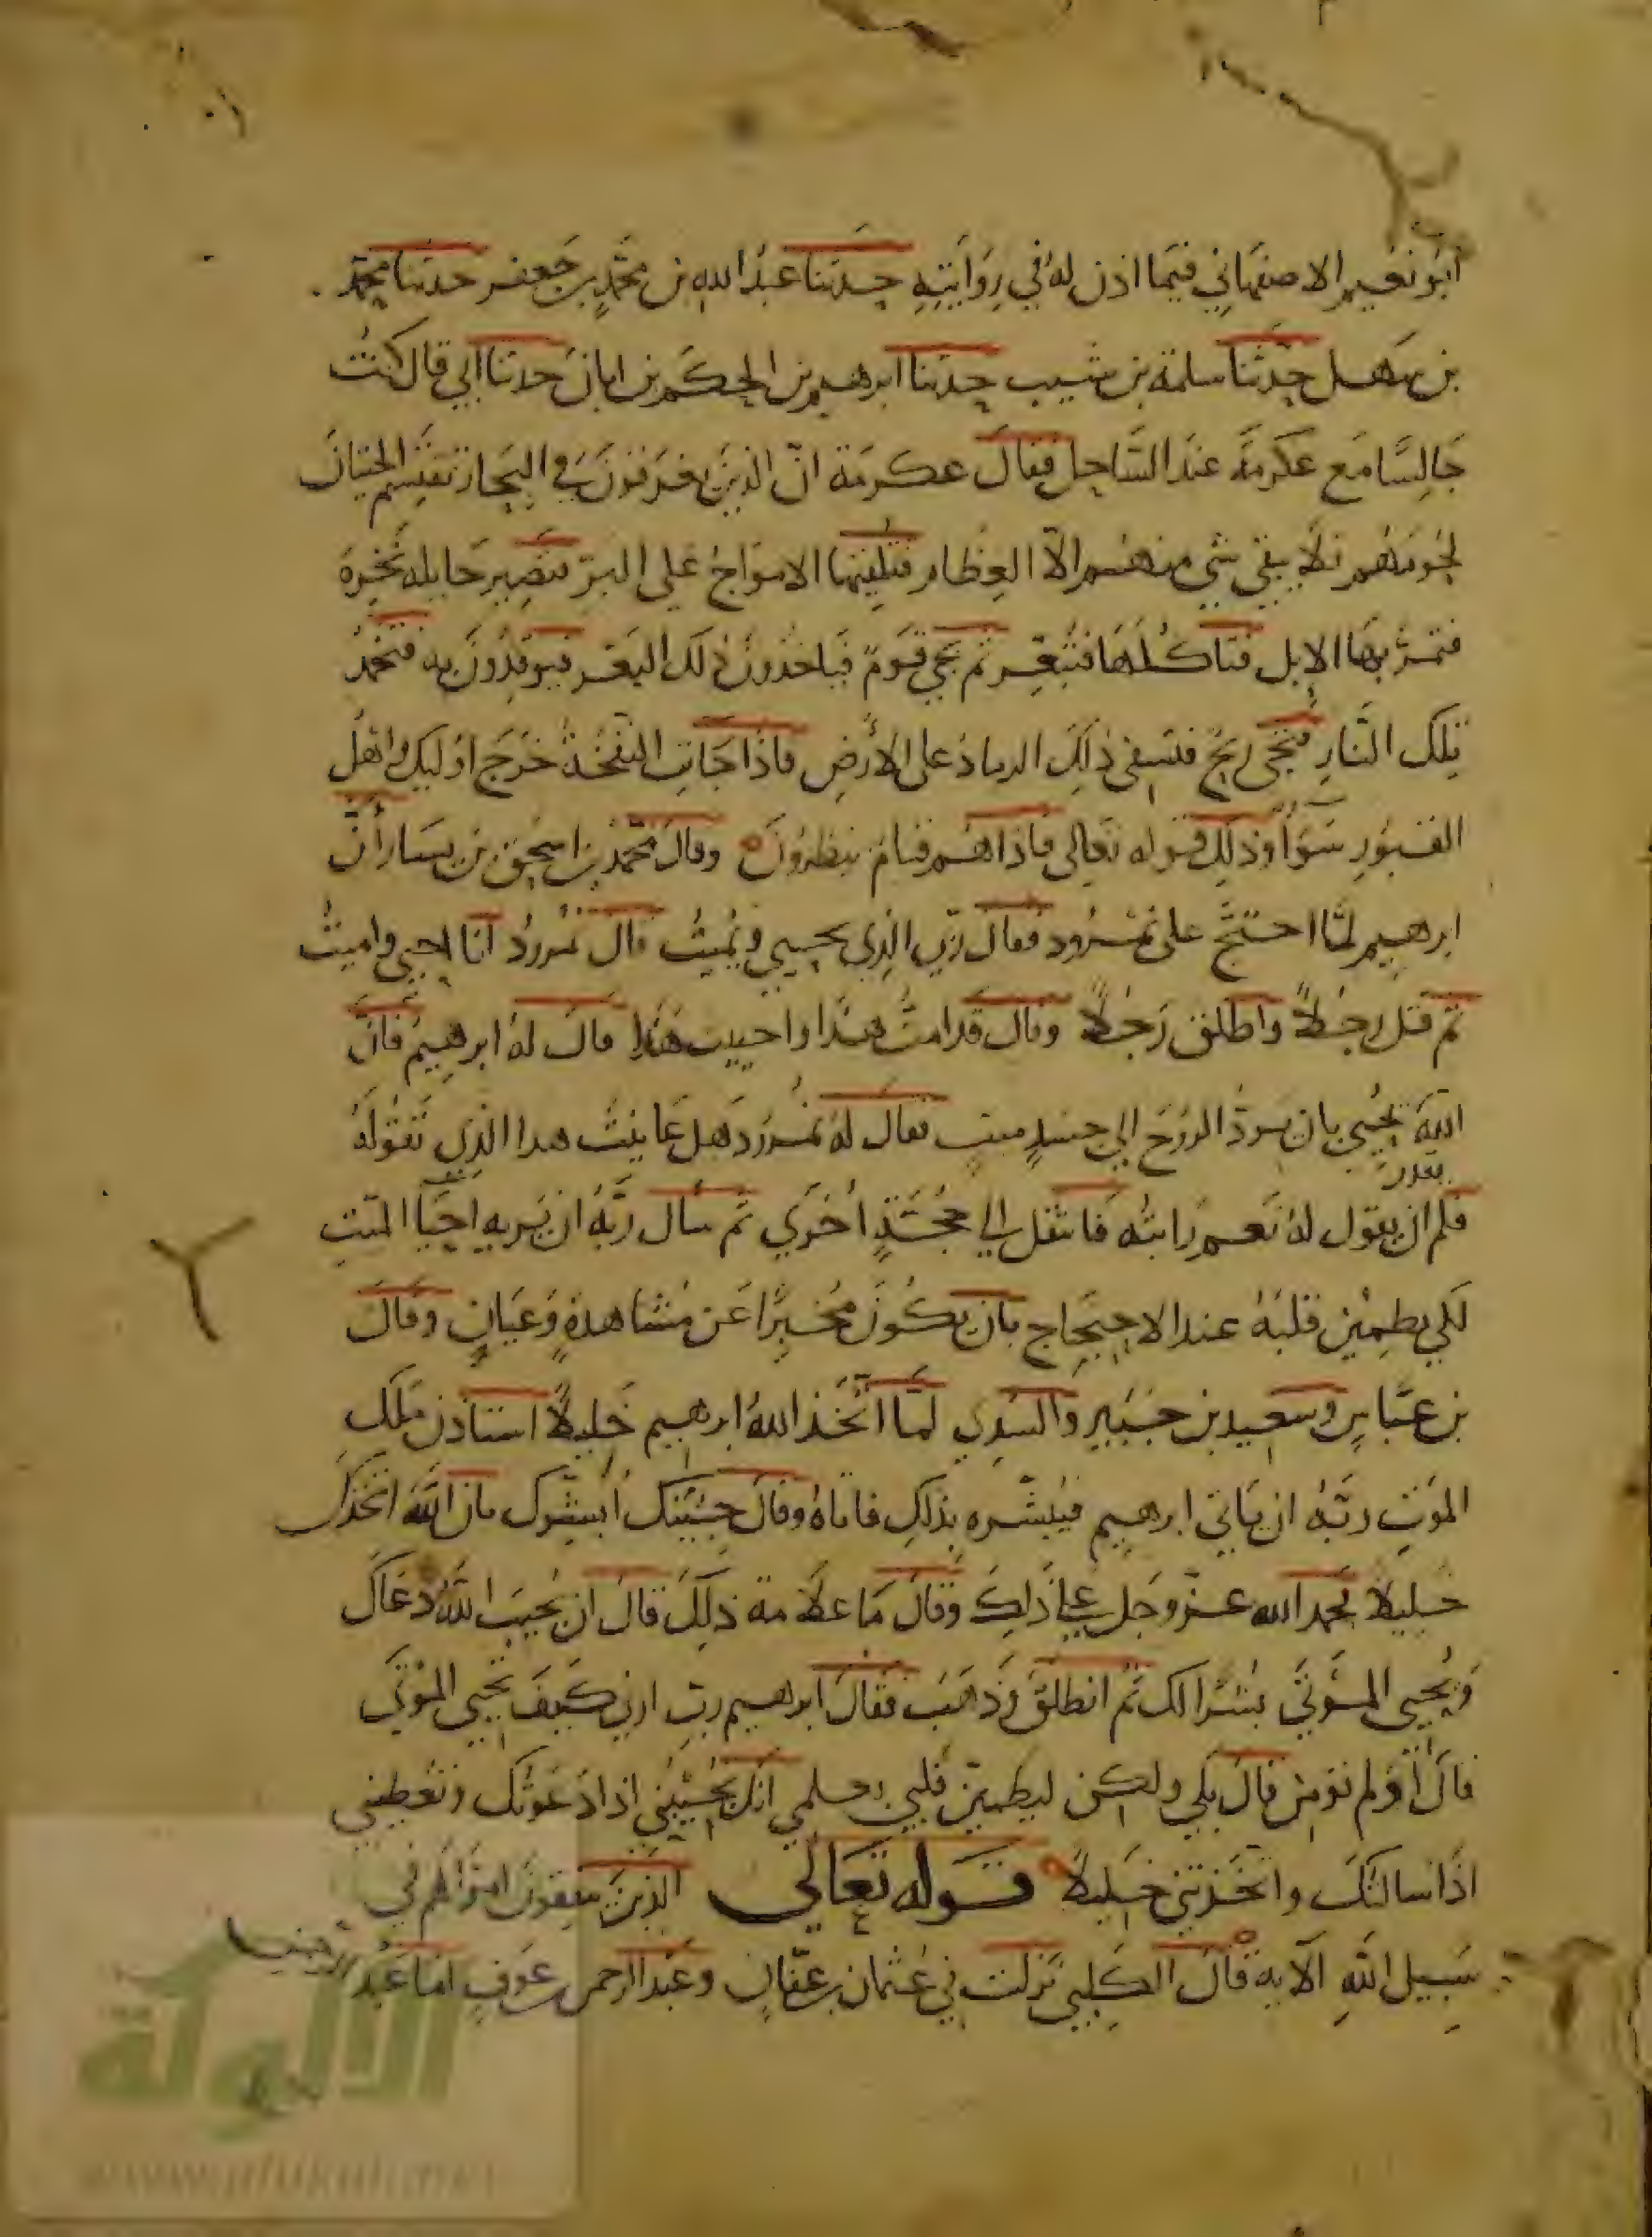 ابو نعيم الاصفهاني فيما اذن له في روايته حدثنا عبد الله بن محمد بن جعفر حدثنا محمد
بن سهل حدثنا سلمة بن شبيب حدثنا ابرهيم بن الحكم بن ابان حدثنا ابي قال كنت
جالسًا مع عكرمة عند الساحل فقال عكرمة ان الذين يغرقون في البحار تقتسم الحيتان
لحومهم فلا يبقي شي منهم الا العظام فتلقيها الامواج علي البر فتصير حايله نخرة
فتمر بها الابل فتاكلها فتبعر ثم يجي قوم فياخذون ذلك البعر فيوقدون به فتخمد
تلك النار فتجي ريح فتسفي ذلك الرماد علي الأرض فاذا جات النفخة خرج اوليك واهل
القبور سوأ وذلك قوله تعالي فاذا هم قيام ينظرون وقال محمد بن اسحق بن يسار أن
ابرهيم لما احتج علي نمرود فقال ربي الذي يحيي ويميت قال نمرود انا احيي واميت
ثم قتل رجلاً واطلق رجلاً وقال قد امت هذا واحييت هذا قال له ابرهيم فان
الله يحيي بان يرد الروح الي جسدٍ ميتٍ فقال له نمرود هل عاينت هذا الذي تقوله
يقدر
فلم ان يقول له نعم رايته فانتقل الي حجةٍ أخري ثم سأل ربه ان يريه احيا الميت
لكي يطمئن قلبه عند الاحتجاج بان يكون مخبرًا عن مشاهدةٍ وعيانٍ وقال
بن عباس وسعيد بن جبير والسدي لما اتخذ الله ابرهيم خليلاً استاذن ملك
الموت ربه ان ياتي ابرهيم فيبشره بذلك فاتاه وقال جئتك أبشرك بان الله اتخذك
خليلاً فحمد الله عز وجل علي ذلك وقال ما علامة ذلك قال ان يجيب الله دعاك
ويحيي الموتي بسؤالك ثم انطلق وذهب فقال ابرهيم رب ارني كيف تحيي الموتي
قال أولم تؤمن قال بلي ولكن ليطمين قلبي بعلمي انك تجيبني اذا دعوتك وتعطيني
اذا سالتك واتخذتني خليلاً قوله تعالي الذين ينفقون اموالهم في
سبيل الله الآيه قال الكلبي نزلت في عثمان بن عفان وعبد الرحمن بن عوف اما عبد
الرحمن
الألوكة
www.alukah.net